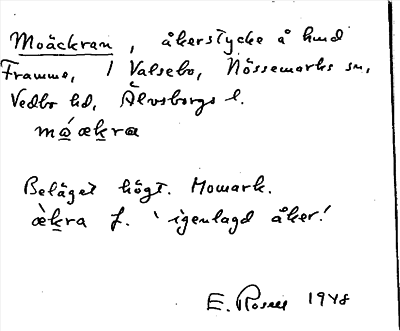 Moäckran, åkerstycke å
Framme, i Valsebo, Nössemarks sn,
Vedbo hd, Älvsborgs l.
må´ækra
Beläget högt. Momark.
æ̀kra f. 'igenlagd åker'
E. 1948